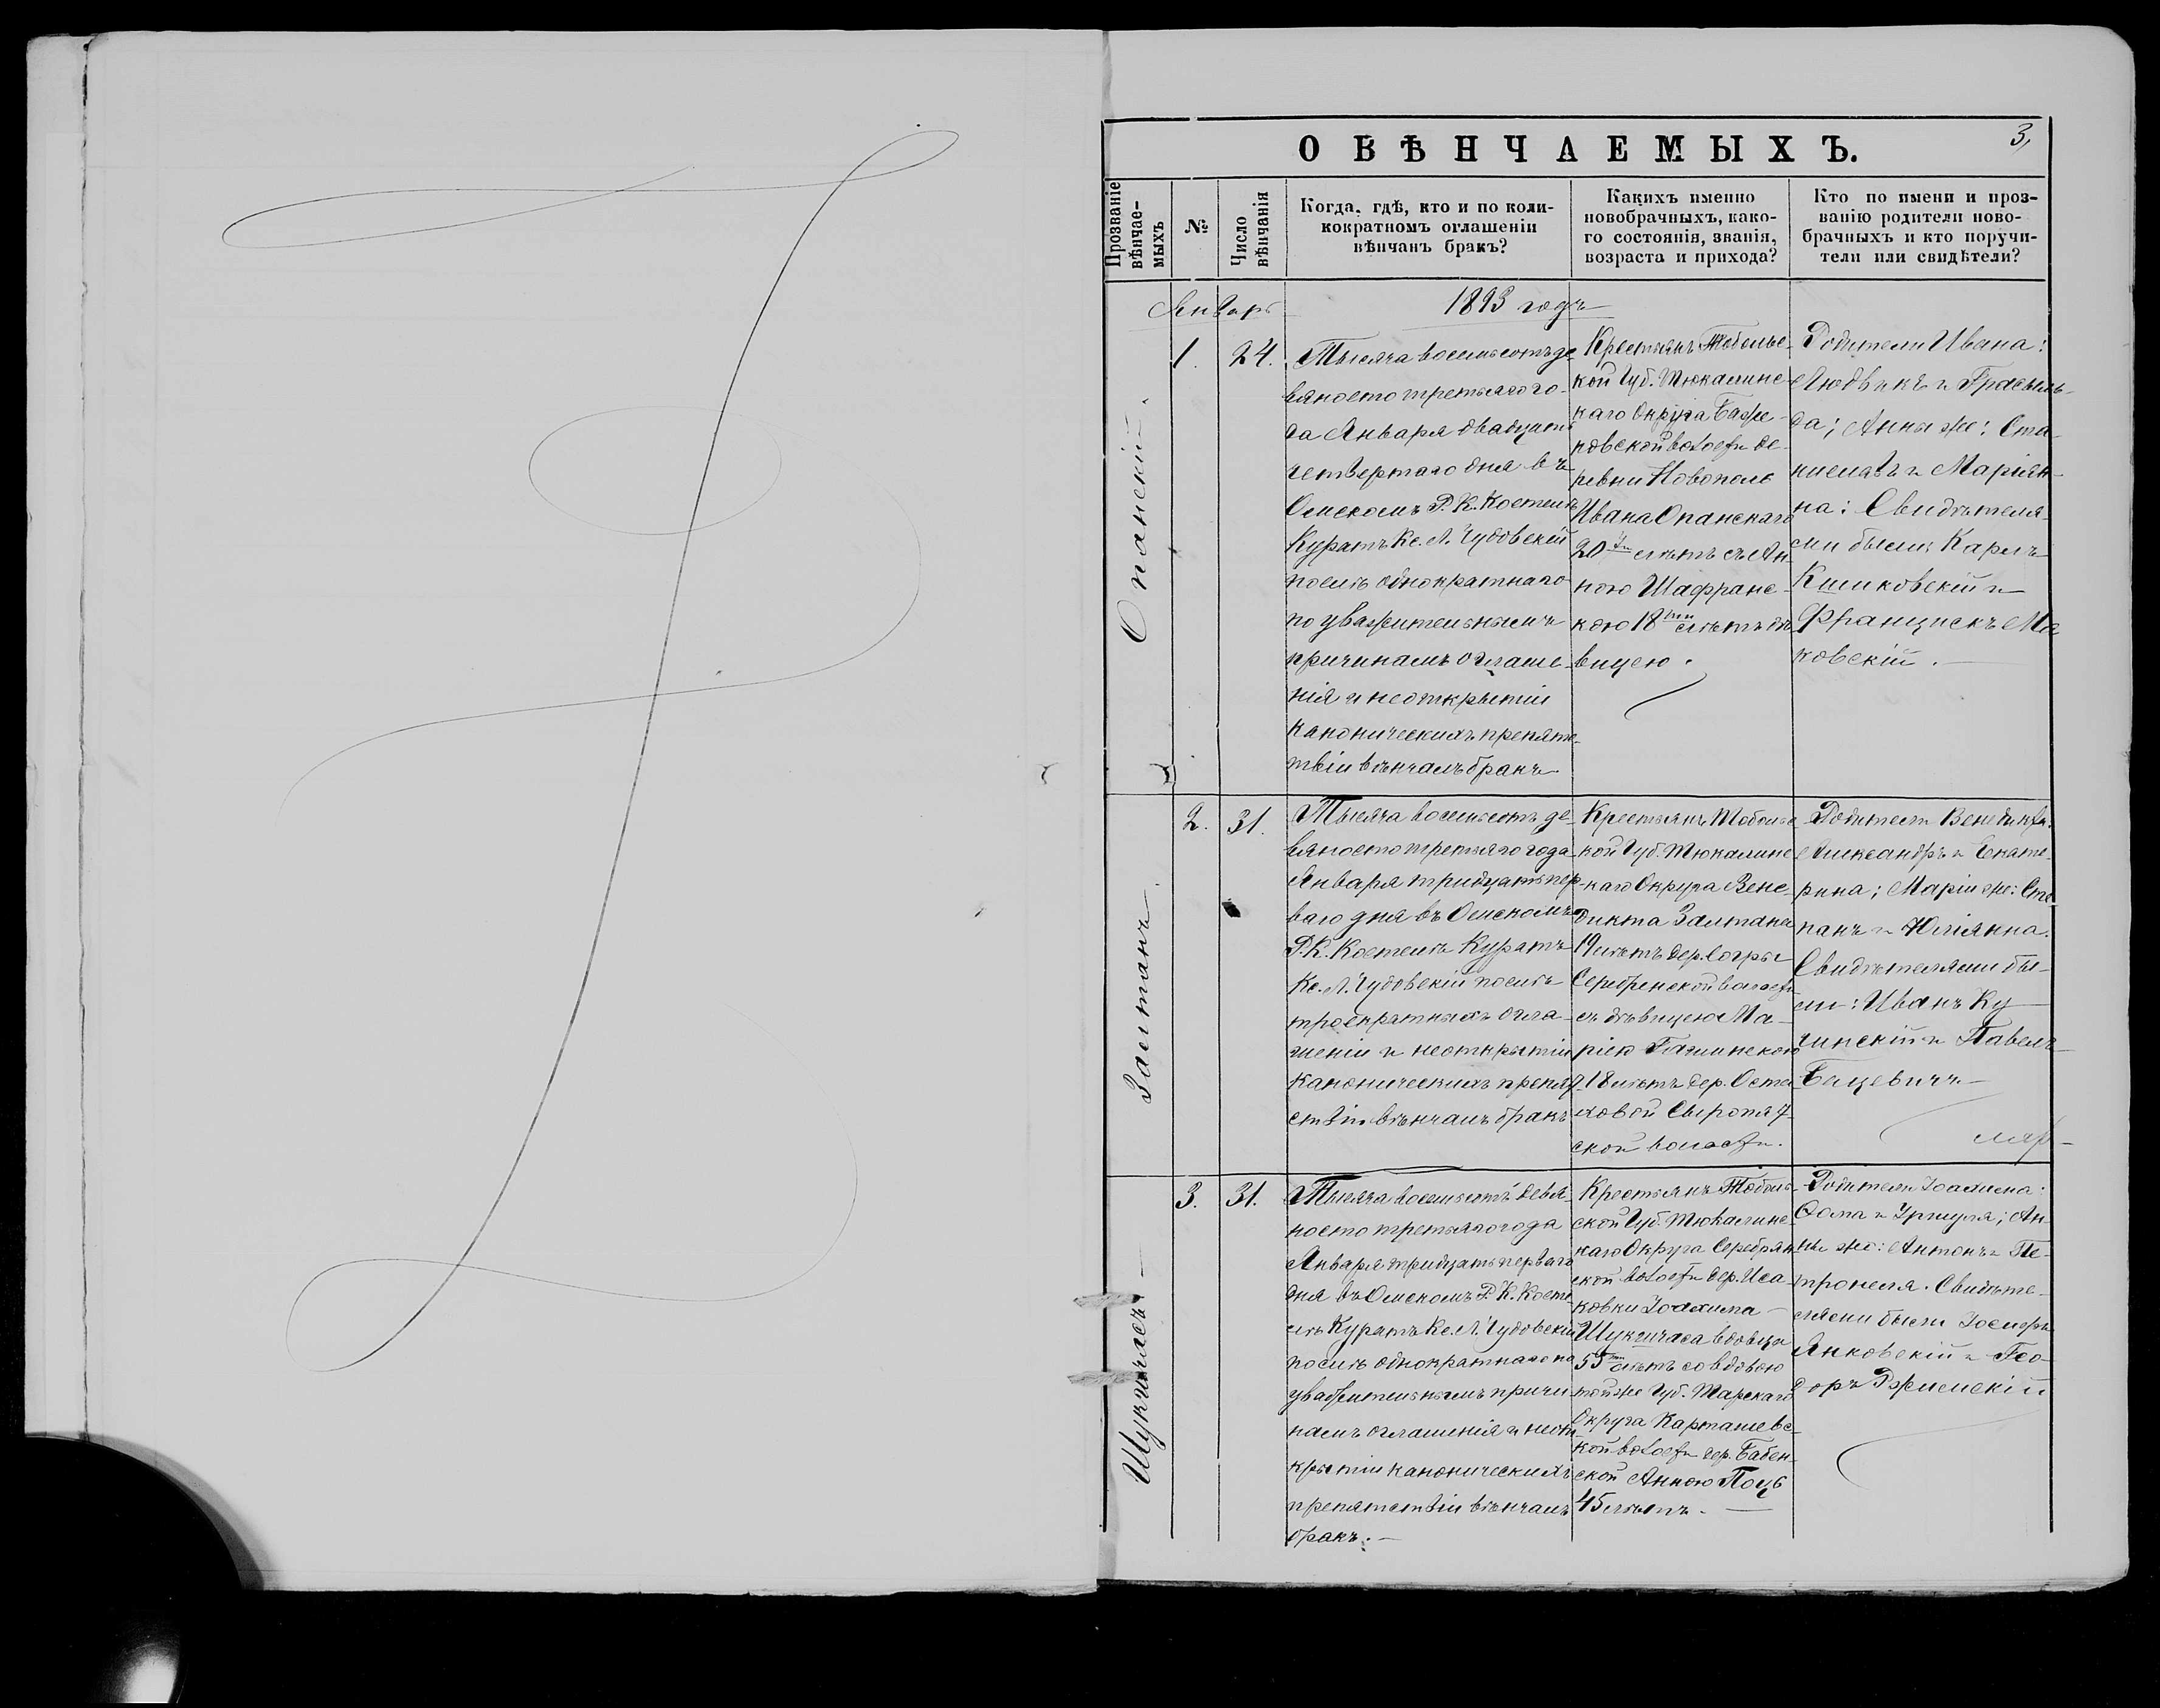 3,
О ВѢНЧАЕМЫХЪ.
Прозваніе
вѣнчае-
мыхъ
№
Число
вѣнчанія
Когда, гдѣ, кто и по коли-
кократномъ оглашеніи
вѣнчанъ бракъ?
Какихъ именно
новобрачныхъ, како-
го состоянія, званія,
возраста и прихода?
Кто по имени и проз-
ванію родители ново-
брачныхъ и кто поручи-
тели или свидѣтели?
Январь
1893 годъ
Опанскій.
1.
24.
Тысяча восемьсотъ де-
вяносто третьяго го-
да Января двадцать
четвертаго дня въ
Омскомъ Р. К. Костелѣ
Куратъ Кс. Л. Чудовскій
послѣ однократнаго
по уважительнымъ
причинамъ оглаше-
нія и неоткрытіи
каноническихъ препятс-
твіи вѣнчалъ бракъ
Крестьянъ Тобольс-
кой Губ. Тюкалинс-
каго Округа Баже-
новской волости де-
ревни Новополе
Ивана Опанскаго
20 лѣтъ съ Ан-
ною Шафранс-
кою 18 лѣтъ дѣ-
вицею.
Родители Ивана:
Людвикъ и Прасиль-
да; Анны же: Ста-
ниславъ и Маріян-
на: Свидѣтеля-
ми были: Карлъ
Климковскій и
Францискъ Ма
ковскій.
Залтанъ
2.
31.
Тысяча восемьсотъ де-
вяносто третьяго года
Января тридцать пер-
ваго дня въ Омскомъ
Р. К. Костелѣ Куратъ
Кс. Л. Чудовскій послѣ
троекратныхъ огла-
шеніи и неоткрытіи
каноническихъ препят-
ствіи вѣнчалъ бракъ
Крестьянъ Тобольс
кой Губ. Тюкалинс
каго Округа Вене-
дикта Залтана
19 лѣтъ дер. Согры
Серебренской волости
съ дѣвицею Ма-
ріею
18 лѣтъ дер. Оста
ховой Сыропят-
ской волости.
Родители Венедикта:
Александръ и Екате-
рина; Маріи же: Сте-
панъ и Юліянна.
Свидѣтелями бы-
ли: Иванъ Ку
чинскій и Павелъ
Бацевичъ
Шукшчасъ
3.
31.
Тысяча восемьсотъ девя-
носто третьяго года
Января тридцать перваго
дня въ Омскомъ Р. К. Косте-
лѣ Куратъ Кс. Л. Чудовскій
послѣ однократнаго по
уважительнымъ причи
намъ оглашенія и неот-
крытіи каноническихъ
препятствіи вѣнчалъ
бракъ.
Крестьянъ Тоболь-
ской Губ. Тюкалинс-
каго Округа Серебрян
ской волости дер. Иса-
ковки Іоахима
вдовца
55 лѣтъ со вдовою
той же Губ. Тарскаго
Округа Карташевс-
кой волости дер. Бабен-
ской Анною Поцѣ
45 лѣтъ.
Родители Іоахима:
Ѳома и Уршуля; Ан-
ны же: Антонъ и Пе-
тронеля. Свидѣте-
лями были Іосифъ
Янковскій и Ѳео-
доръ Ржимскій